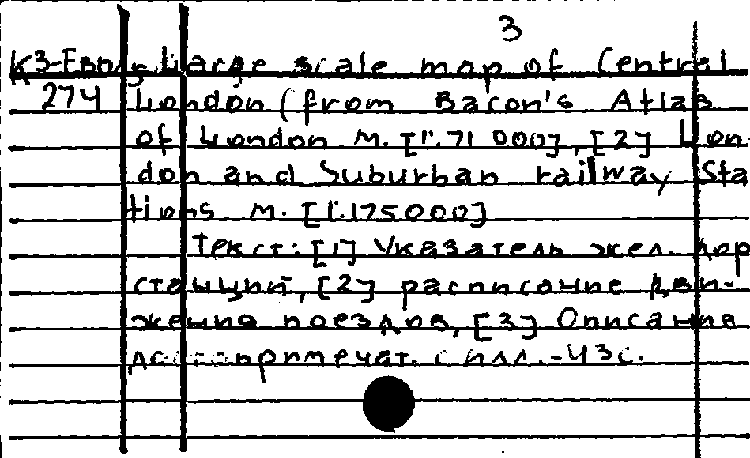 3
К3-Евр Large scale map of Central
274 London (from Bacon's Atlas
of London М. [1:71 000], [2] Lon-
don and Suburban railway Sta
tions М. [1:175000]
Текст: [1] Указатель жел. дор
станций, [2] расписание дви-
жения поездов, [3] Описание
достопримечат. с илл. - 43с.